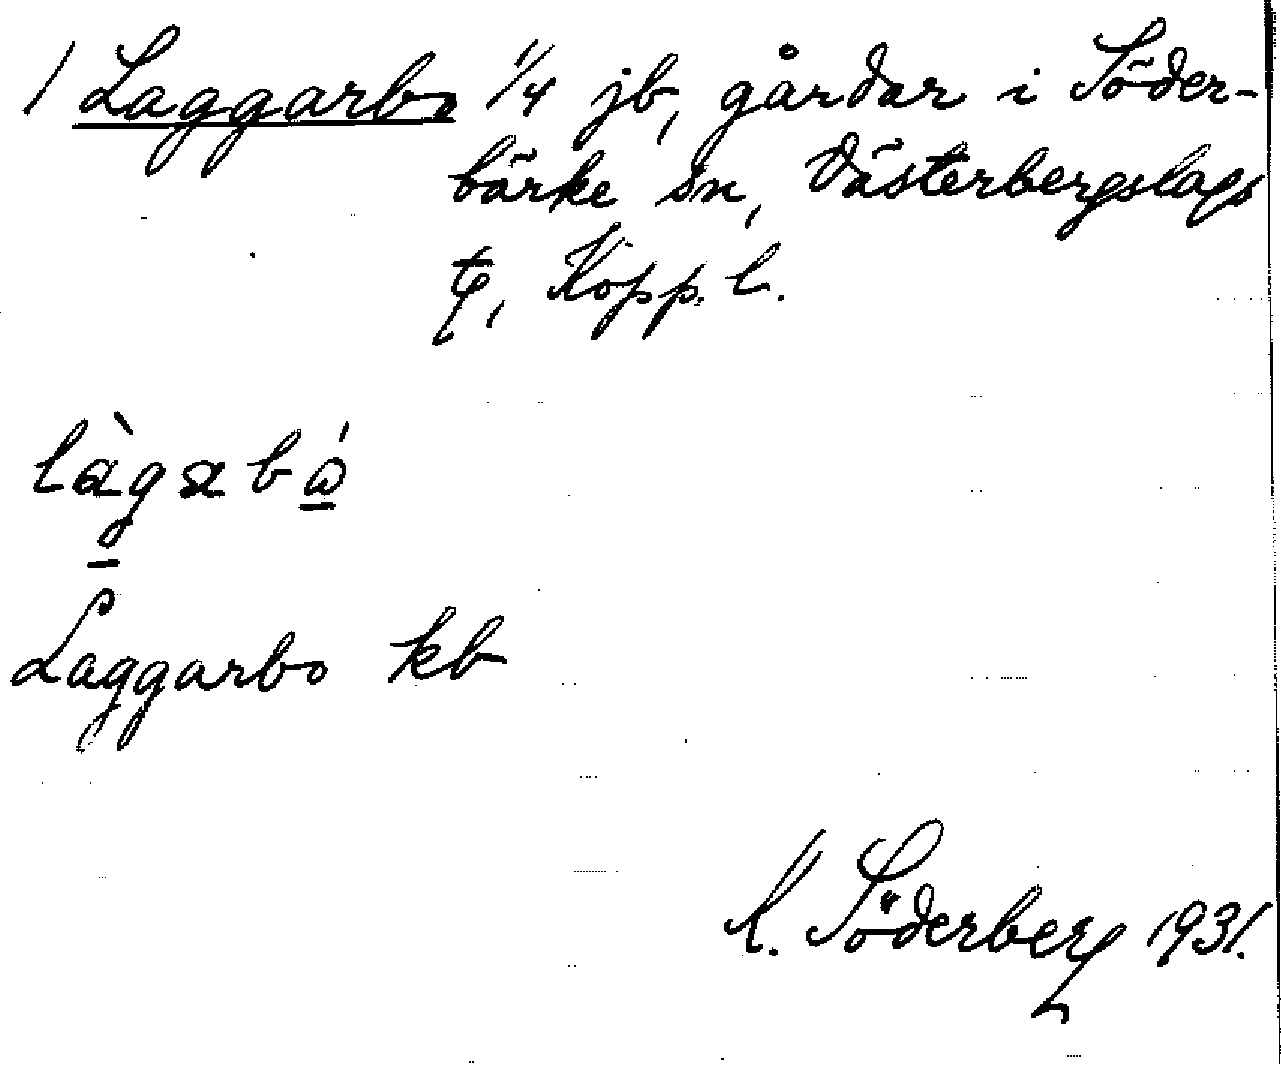 1 Laggarbo 1/4 jb, gårdar i Söder-
bärke sn, Västerbergslags
tg, Kopp. l.
làgabó
Laggarbo kb
Söderberg 1931.